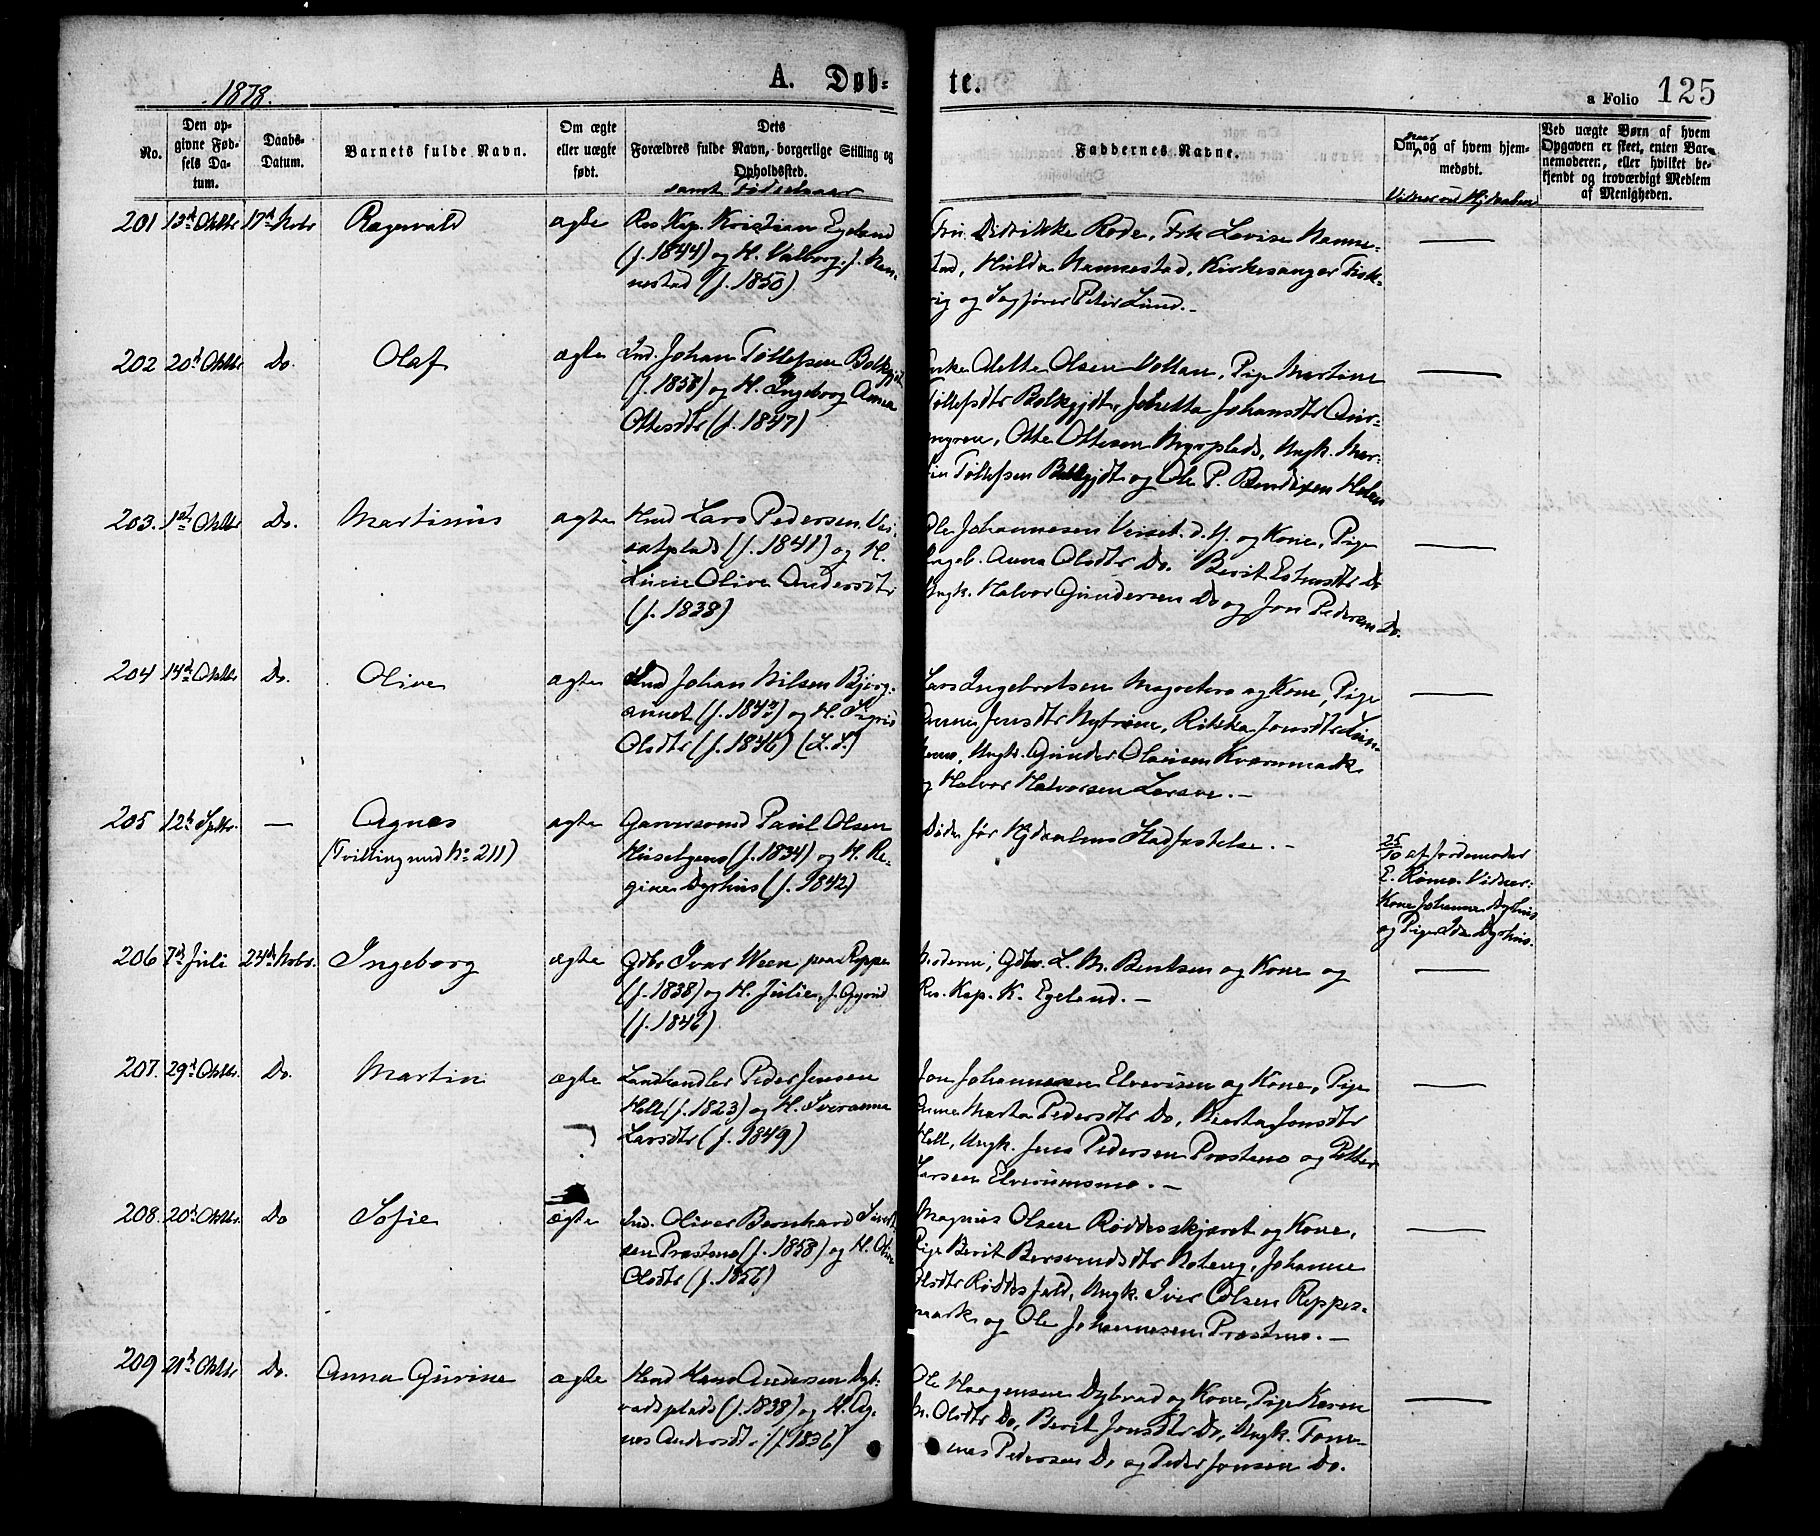 1878.
A. Døb-
te.
a Folio 125
No.
Den op-
givne Fød-
sels Da-
tum.
Daabs-
Datum.
Barnets fulde Navn.
Om ægte
eller uægte
født.
Dets
Forældres fulde Navn, borgerlige Stilling og
Opholdssted.
samt Fødselsaar
Faddernes Navne.
Om naar og af hvem hjem-
medøbt.
Vidner ved Hj.daaben
Ved uægte Børn af hvem
Opgaven er skeet, enten Bar-
nemoderen, eller hvilket be-
kjendt og troværdigt Medlem
af Menigheden.
201 13de Oktbr 17de Novbr Ragnvald ægte
Res Kap. Kristian Egeland
(f. 1844) og H. Valborg f. Han-
nestad (f. 1850)
Fru Didrikke Rode, Frk Lovise Hanne-
stad, Hulda Hannestad, Kirkesanger Fisk-
vig og Sagfører Peter Lund. –
202 20de Oktbr Do. Olaf ægte
Ind. Johan Tollefsen Balkgjdt
(f. 1858) og H. Ingeborg Anna
Ottesdtr (f. 1847)
Enke Olsen Pige Martine
Tollefsdtr Balkgjdt, Johansdtr
Otte Ottesen Myrplads, Ungk. Mar-
tin Tollefsen Balkgjdt og Ole P. Bendixen
203. 1ste Oktbr Do. Martinus ægte
Hmd Lars Pedersen Ves-
(f. 1841) og H.
Olive Andersdtr
(f. 1838)
Ole Johannesen d. y. og Kone, Pige
Ingeb. Anna Olsdtr Do. Berit Do
Ungk. Halvor Gundersen Do og Jon Pedersen Do.
204 14de Oktbr Do. Olive ægte
Ind Johan Nilsen Bjørg-
og H. Sigrid
Olsdtr (f. 1846) (L.S.)
Lars Ingebretsen og Kone, Pige
Jonsdtr Rikka Jonsdtr
Ungk. Gunder Olausen Kvernmark
og Halvor Halvorsen –
205 12te Septbr. — Agnes ægte
(Tvilling med No 211)
Garversvend Paul Olsen
(f. 1834) og H. Re-
gine Dyrhus (f. 1842)
Døde før Hjdaabens Stadfæstelse. –
25/10 af Jordemoder
E. Romo. Vidner:
Kone Johanne Dyrhus
og Pige Ida Dyrhus.
206 7de Juli 24de Novbr. Ingeborg ægte
Gdbr Ivar Ween paa Reppe
(f. 1838) og H. Julie, f.
(f. 1846)
Moderen, Gdbr. L. M. Bentsen og Kone og
Res. Kap. K. Egeland. –
207. 29de Oktbr. Do. Martin ægte
Landhandler Peder Jensen
Hell (f. 1823) og H.
Larsdtr (f. 1849)
Jon Johannesen og Kone, Pige
Anne Marta Pedersdtr Do, Jonsdtr
Hell, Ungk. Jens Pedersen Præstmo og Petter
Larsen –
208. 20de Oktbr. Do Sofie ægte
Ind. Oliver Bernhard Sivert-
sen Præstmo (f. 1858) og H. Oline
Olsdtr (f. 1856)
Magnus Olsen Røddesskjæret og Kone,
Pige Berit Johanne
Olsdtr Ungk. Iver Olsen Reppes-
mark og Ole Johannesen Præstmo. –
209 21de Oktbr Do. Anna Gurine ægte
Hmd Hans Andersen Dyb-
vadsplads (f. 1838) og H. Ag-
nes Andersdtr (f. 1836)
Ole Haagensen Dybvad og Kone, Pige Karen
Olsdtr Do, Berit Jonsdtr Do, Ungk. Tøn-
nes Pedersen Do og Peder Jonsen Do.